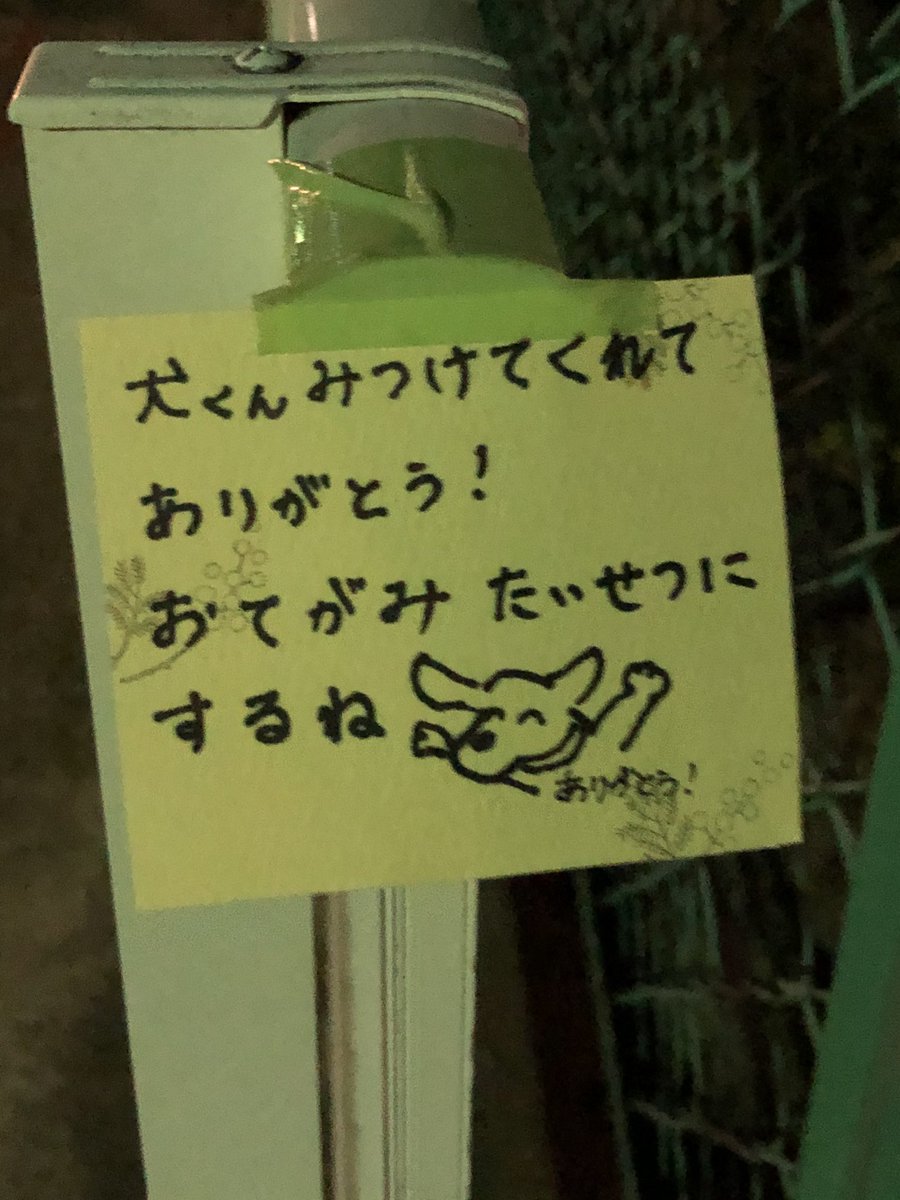 犬くんみつけてくれて
ありがとう!
おてがみ たいせつに
するね
ありがとう!